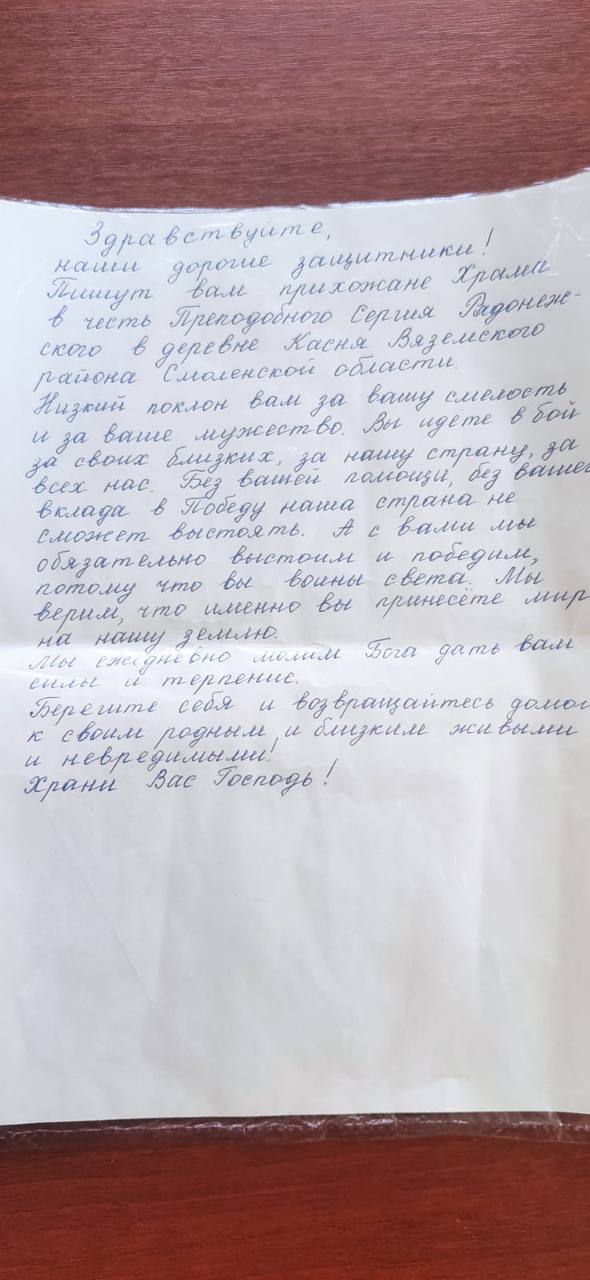 Здравствуйте,
наши дорогие защитники!
Пишут вам прихожане Храма
в честь Преподобного Сергия Радонеж-
ского в деревне Касня Вяземского
района Смоленской области.
Низкий поклон вам за вашу смелость
и за ваше мужество. Вы идёте в бой
за своих близких, за нашу страну, за
всех нас. Без вашей помощи, без вашего
вклада в Победу наша страна не
сможет выстоять. А с вами мы
обязательно выстоим и победим,
потому что вы воины света. Мы
верим, что именно вы принесёте мир
на нашу землю.
Мы ежедневно молим Бога дать вам
силы и терпение.
Берегите себя и возвращайтесь домой
к своим родным и близким живыми
и невредимыми!
Храни Вас Господь!